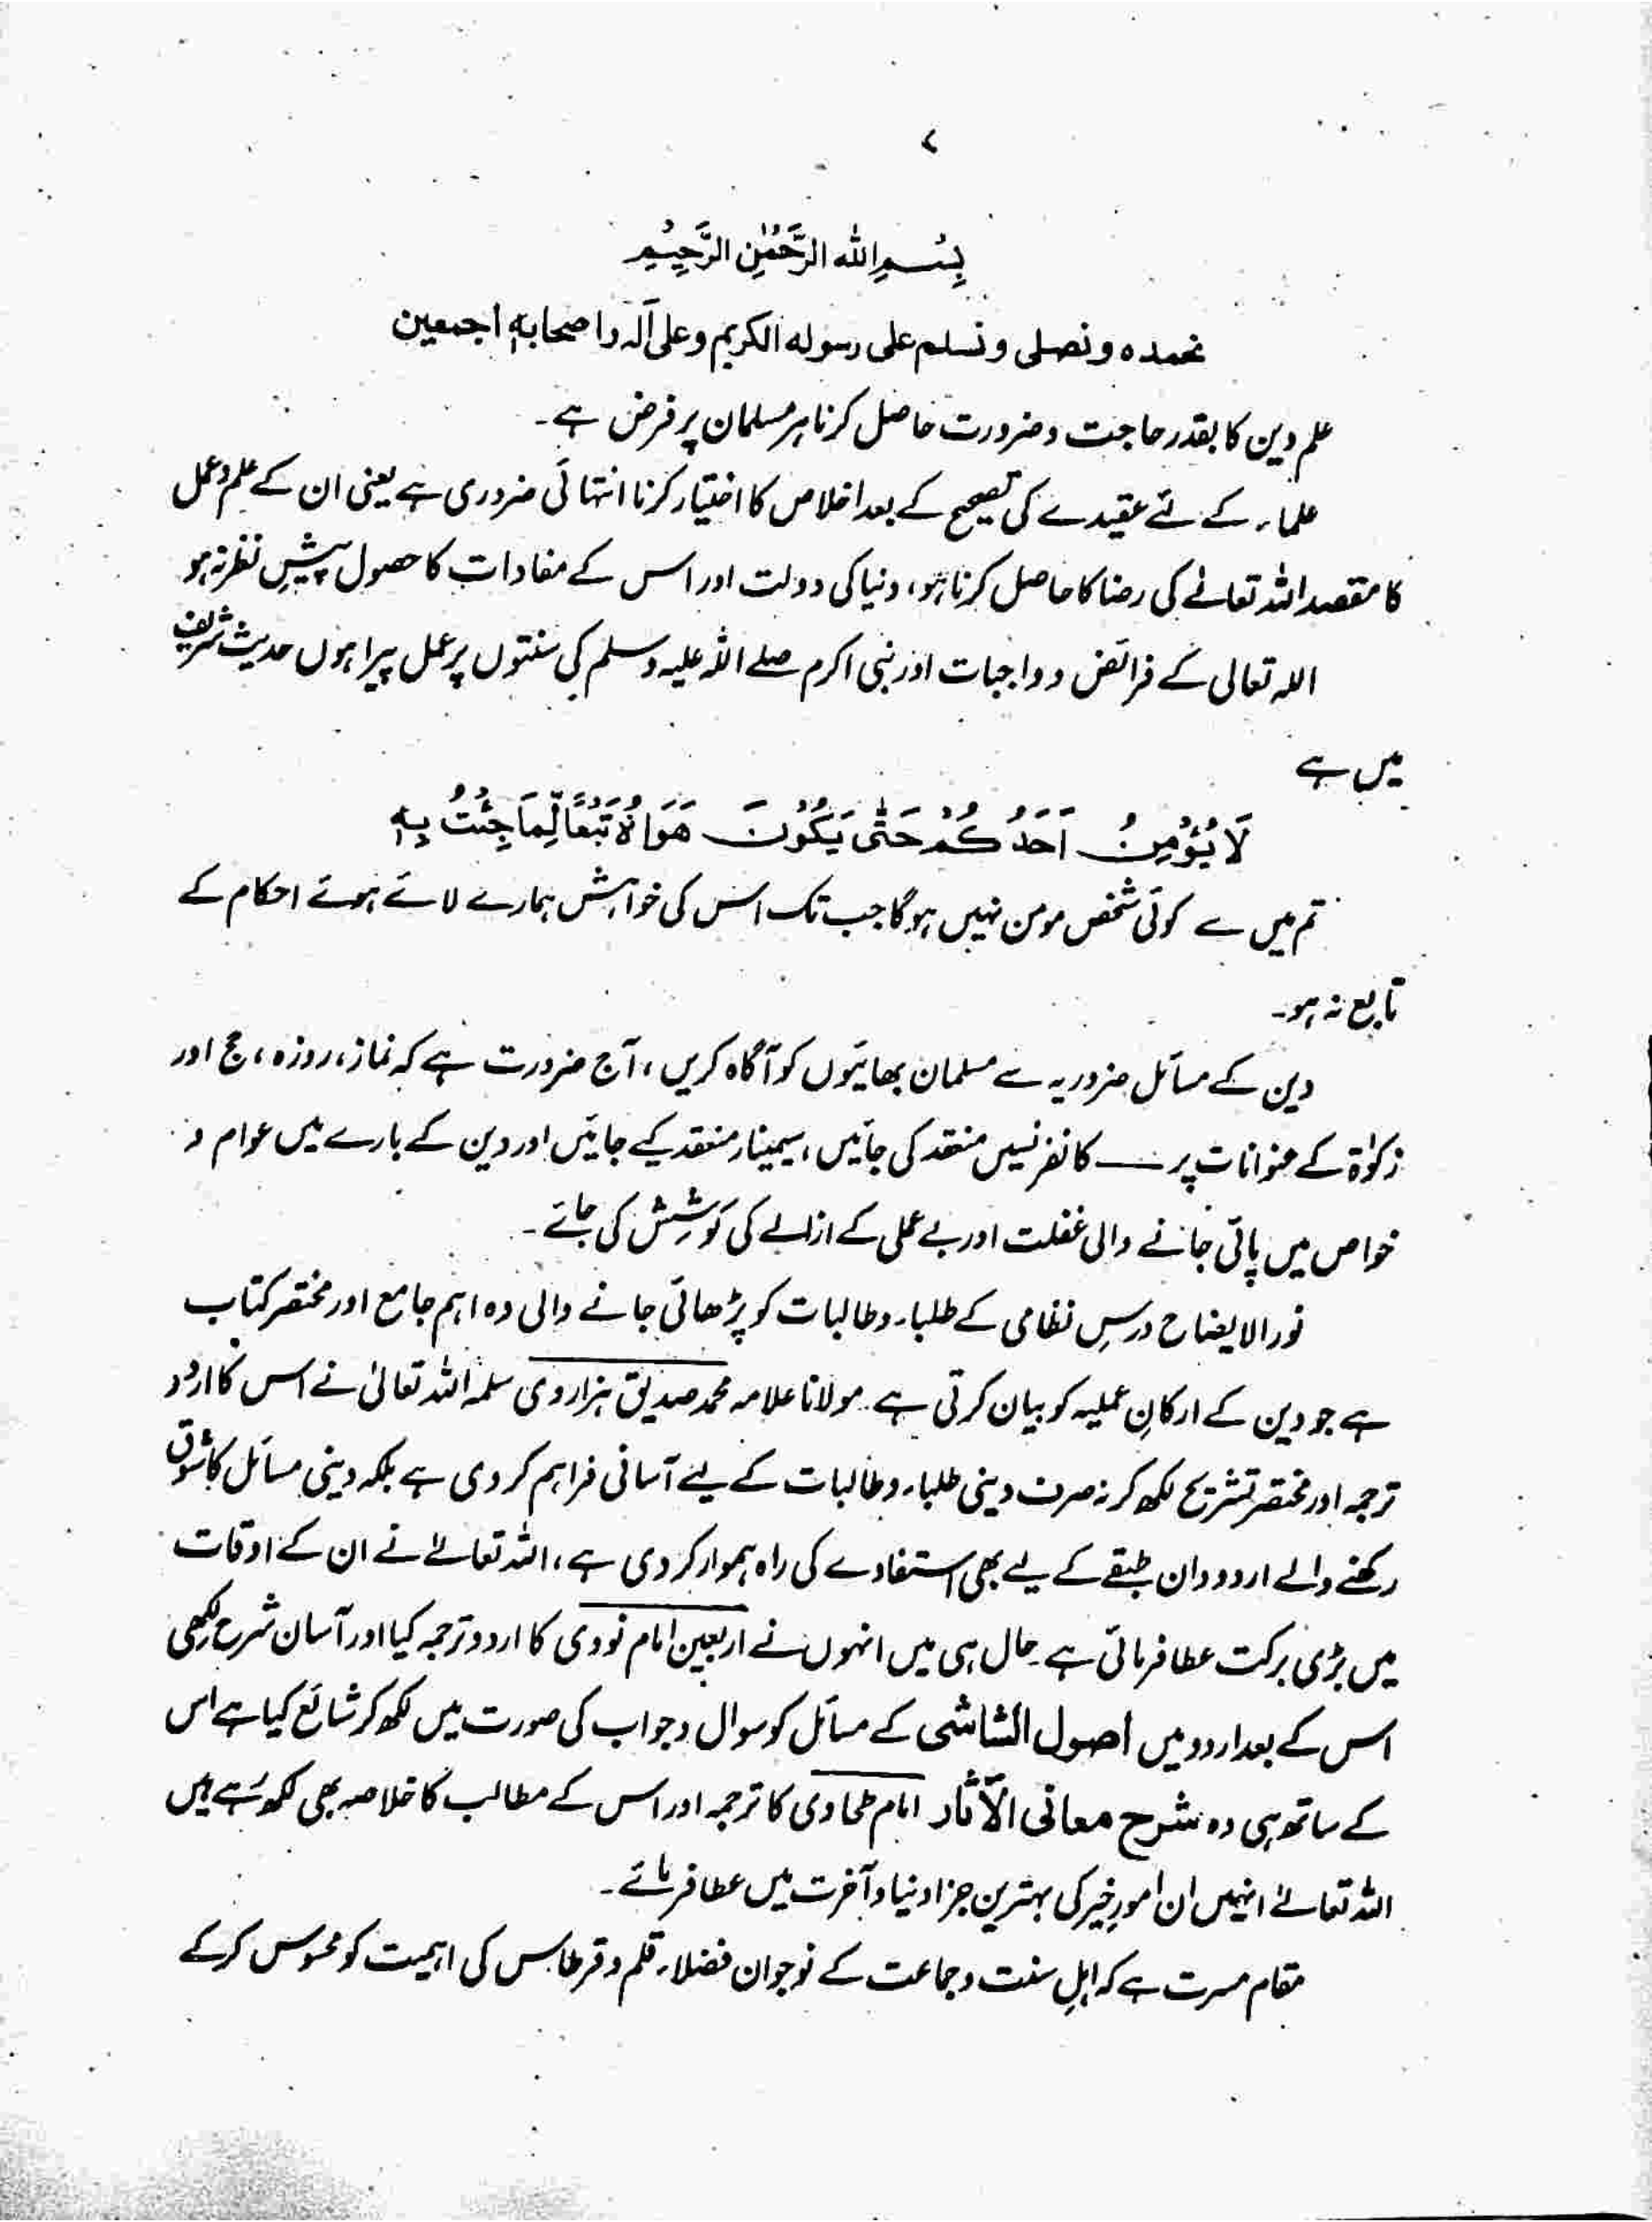 ۷
بِسْمِ اللهِ الرَّحْمٰنِ الرَّحِيْمِ
نحمده ونصلی ونسلم علی رسوله الکریم وعلی آله واصحابهٖ اجمعین
علم دین کا بقدر حاجت و ضرورت حاصل کرنا ہر مسلمان پر فرض ہے۔
علماء کے لئے عقیدے کی تصحیح کے بعد اخلاص کا اختیار کرنا انتہائی ضروری ہے یعنی ان کے علم و عمل
کا مقصد اللہ تعالےٰ کی رضا کا حاصل کرنا ہو، دنیا کی دولت اور اس کے مفادات کا حصول پیشِ نظر نہ ہو
اللہ تعالی کے فرائض و واجبات اور نبی اکرم صلے اللہ علیہ وسلم کی سنتوں پر عمل پیرا ہوں حدیث شریف
میں ہے
لَا يُؤْمِنُ اَحَدُكُمْ حَتّٰى يَكُوْنَ هَوَاهُ تَبْعًا لِّمَا جِئْتُ بِهٖ
تم میں سے کوئی شخص مومن نہیں ہوگا جب تک اس کی خواہش ہمارے لائے ہوئے احکام کے
تابع نہ ہو۔
دین کے مسائل ضروریہ سے مسلمان بھائیوں کو آگاہ کریں، آج ضرورت ہے کہ نماز، روزہ، حج اور
زکوٰۃ کے عنوانات پر ــــ کانفرنسیں منقد کی جائیں، سیمینار منعقد کیے جائیں اور دین کے بارے میں عوام و
خواص میں پائی جانے والی غفلت اور بے عملی کے ازالے کی کوشش کی جائے۔
نور الایضاح درسِ نظامی کے طلباء و طالبات کو پڑھائی جانے والی وہ اہم جامع اور مختصر کتاب
ہے جو دین کے ارکانِ عملیہ کو بیان کرتی ہے۔ مولانا علامہ محمد صدیق ہزاروی سلمہ اللہ تعالیٰ نے اس کا اردو
ترجمہ اور مختصر تشریح لکھ کر نہ صرف دینی طلباء و طالبات کے لیے آسانی فراہم کر دی ہے بلکہ دینی مسائل کا شوق
رکھنے والے اردو دان طبقے کے لیے بھی استفادے کی راہ ہموار کر دی ہے، اللہ تعالےٰ نے ان کے اوقات
میں بڑی برکت عطا فرمائی ہے۔ حال ہی میں انہوں نے اربعین امام نووی کا اردو ترجمہ کیا اور آسان شرح لکھی
اس کے بعد اردو میں اصول الشاشی کے مسائل کو سوال و جواب کی صورت میں لکھ کر شائع کیا ہے اس
کے ساتھ ہی وہ شرح معانی الآثار امام طحاوی کا ترجمہ اور اس کے مطالب کا خلاصہ بھی لکھ رہے ہیں
اللہ تعالےٰ انہیں ان امورِ خیر کی بہترین جزا دنیا و آخرت میں عطا فرمائے۔
مقام مسرت ہے کہ اہلِ سنت و جماعت کے نوجوان فضلاء قلم و قرطاس کی اہمیت کو محسوس کر کے